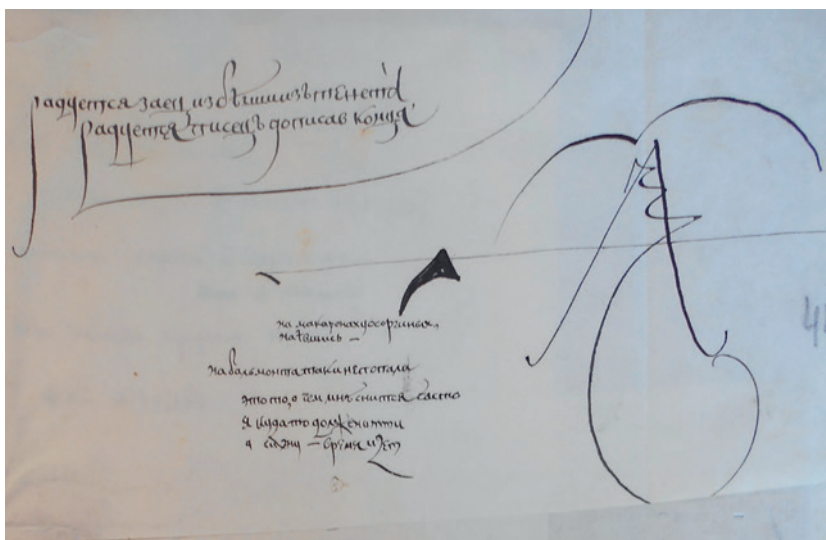 радуется заец избѣгшии изъ тенета
радуется писецъ дописав конца
на макаронах у осоргиных,
наѣвшись —
на бальмонта таки не стопала
это то, о чем мнѣ снится часто
я куда-то должен итти
а сижу — время идет
4